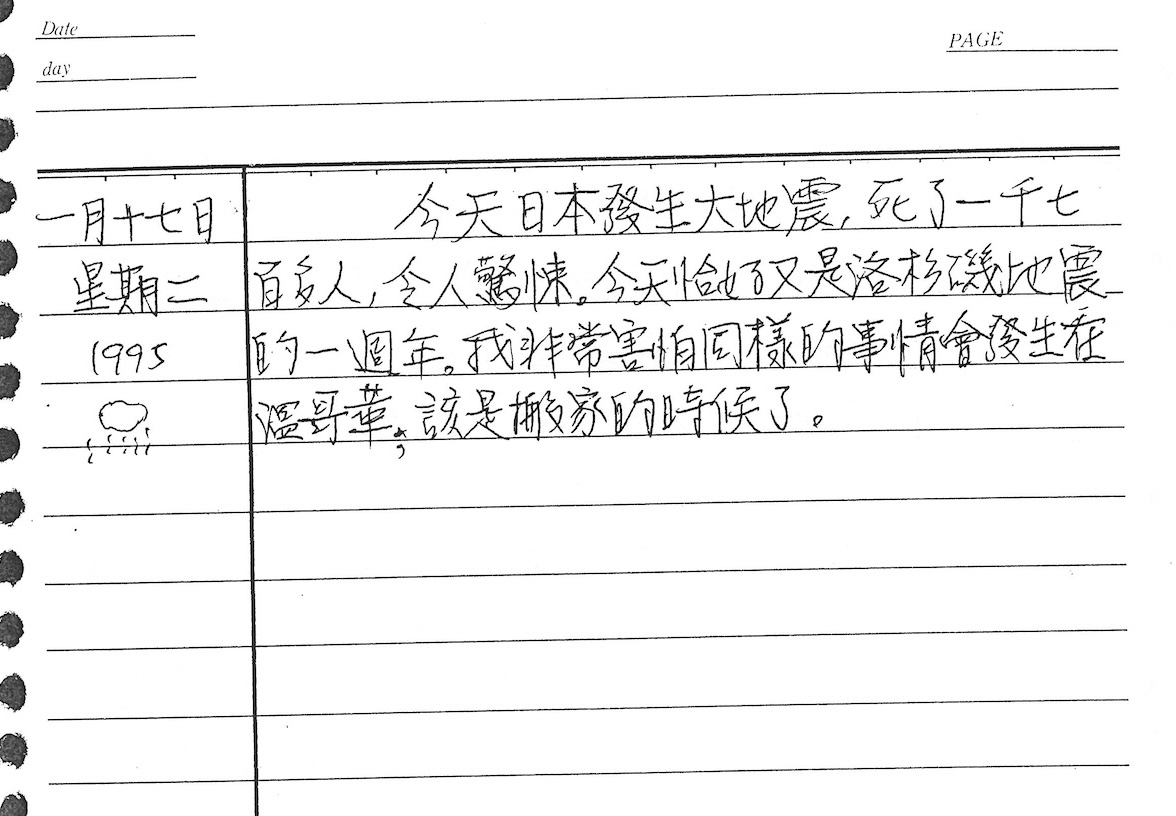 Date
PAGE
day
一月十七日
星期二
1995
今天日本發生大地震,死了一千七
百多人,令人驚悚。今天恰好又是洛杉磯地震
的一週年。我非常害怕同樣的事情會發生在
溫哥華,該是搬家的時候了。